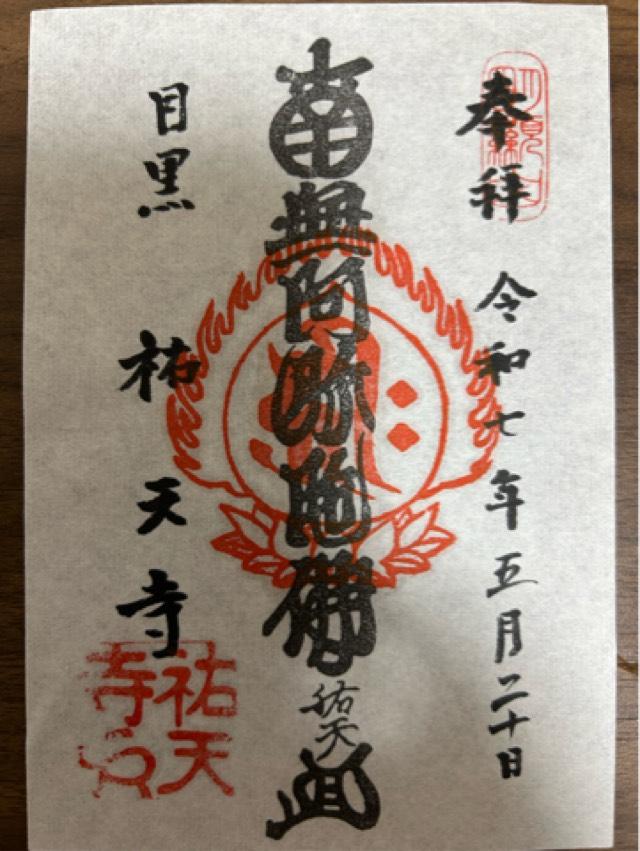 奉拝
令和七年五月二十日
南無阿弥陀佛
祐天
目黒
祐天寺
祐天
寺